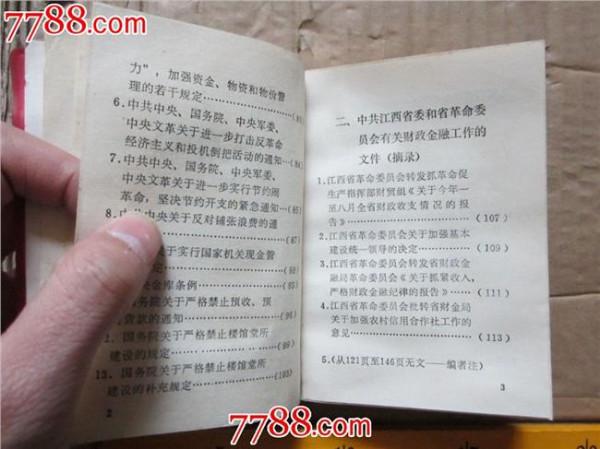 7788.com
7788.com
力”，加强资金、物资和物价管
理的若干规定
6.中共中央、国务院、中央军委、
中央文革关于进一步打击反革命
经济主义和投机倒把活动的通知…(84)
7.中共中央、国务院、中央军委、
中央文革关于进一步实行节约闹
革命，坚决节约开支的紧急通知…(85)
8.中共中央关于反对铺张浪费的通
(87)
关于实行国家机关现金管
金库条例…………(93)
国务院关于严格禁止预收，预
货款的通知…………(96)
国务院关于严格禁止楼馆堂所
建设的规定…………(99)
13.国务院关于严格禁止楼馆堂所
建设的补充规定…………(103)
2
二、中共江西省委和省革命委
员会有关财政金融工作的
文件（摘录）
1.江西省革命委员会转发抓革命促
生产指挥部财贸组《关于今年一
至八月全省财政收支情况的报
告》…………(107)
2.江西省革命委员会关于加强基本
建设统一领导的决定…………(109)
3.江西省革命委员会转发省财政金
融局革命委员会《关于抓紧收入，
严格财政金融纪律的报告》……(111)
4.江西省革命委员会批转省财金局
关于加强农村信用合作社工作的
意见…………(113)
5.(从121页至146页无文——编者注)
3
7788.com